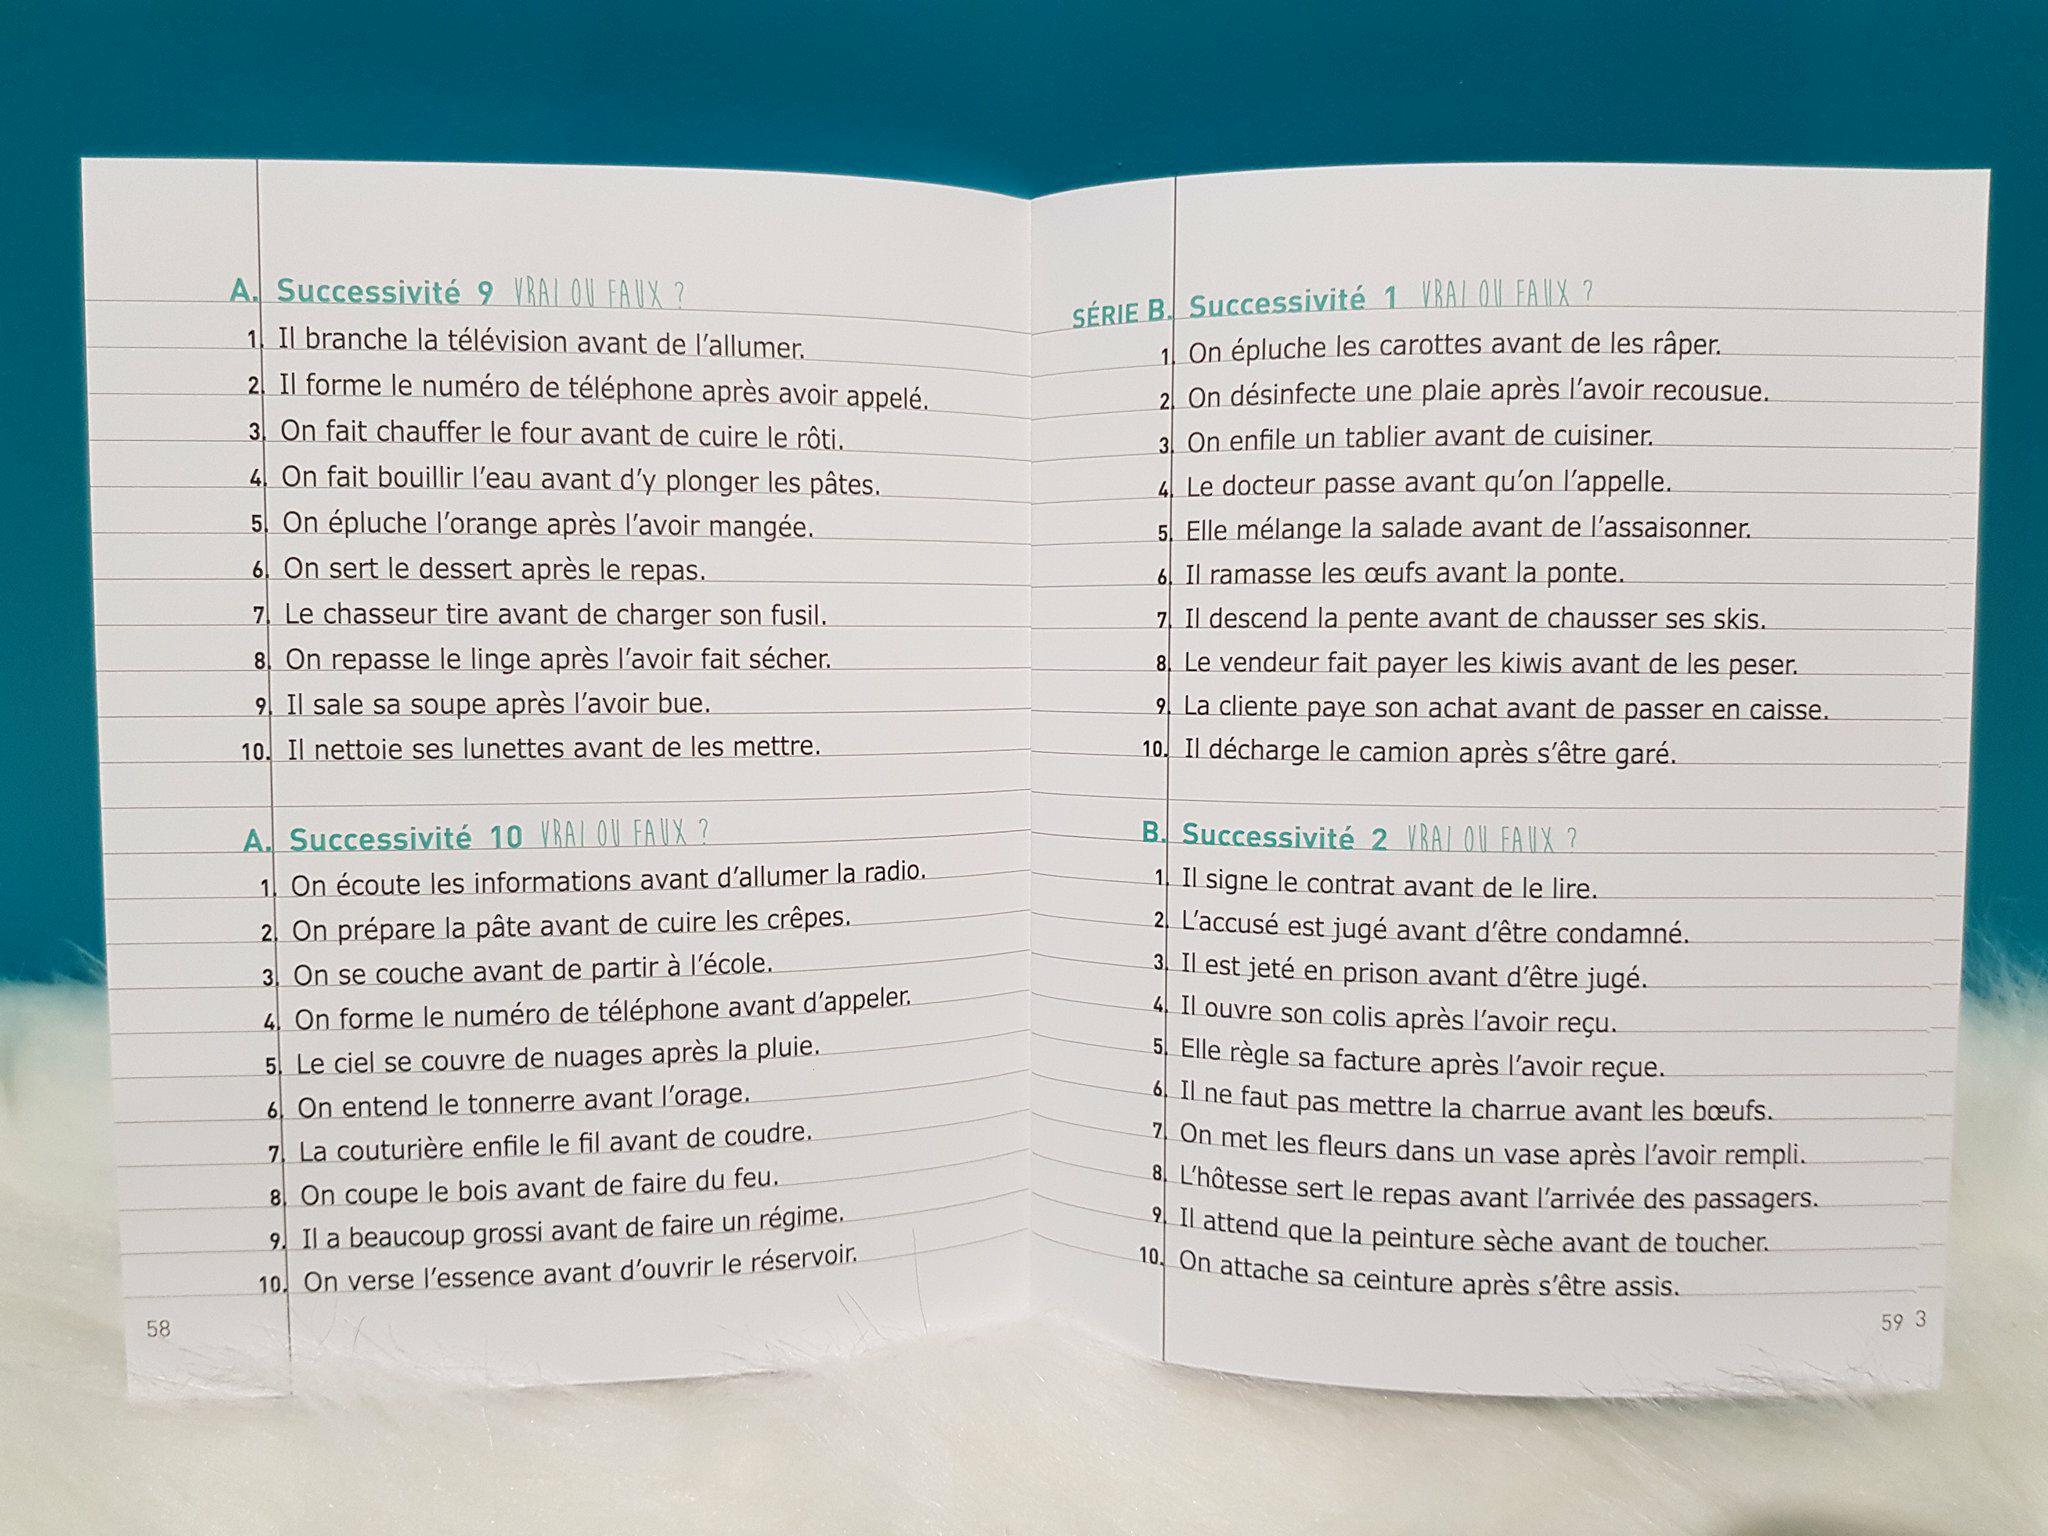 A. Successivité 9 VRAI OU FAUX ?
1. Il branche la télévision avant de l'allumer.
2. Il forme le numéro de téléphone après avoir appelé.
3. On fait chauffer le four avant de cuire le rôti.
4. On fait bouillir l'eau avant d'y plonger les pâtes.
5. On épluche l'orange après l'avoir mangée.
6. On sert le dessert après le repas.
7. Le chasseur tire avant de charger son fusil.
8. On repasse le linge après l'avoir fait sécher.
9. Il sale sa soupe après l'avoir bue.
10. Il nettoie ses lunettes avant de les mettre.
A. Successivité 10 VRAI OU FAUX ?
1. On écoute les informations avant d'allumer la radio.
2. On prépare la pâte avant de cuire les crêpes.
3. On se couche avant de partir à l'école.
4. On forme le numéro de téléphone avant d'appeler.
5. Le ciel se couvre de nuages après la pluie.
6. On entend le tonnerre avant l'orage.
7. La couturière enfile le fil avant de coudre.
8. On coupe le bois avant de faire du feu.
9. Il a beaucoup grossi avant de faire un régime.
10. On verse l'essence avant d'ouvrir le réservoir.
58
SÉRIE B. Successivité 1 VRAI OU FAUX ?
1. On épluche les carottes avant de les râper.
2. On désinfecte une plaie après l'avoir recousue.
3. On enfile un tablier avant de cuisiner.
4. Le docteur passe avant qu'on l'appelle.
5. Elle mélange la salade avant de l'assaisonner.
6. Il ramasse les œufs avant la ponte.
7. Il descend la pente avant de chausser ses skis.
8. Le vendeur fait payer les kiwis avant de les peser.
9. La cliente paye son achat avant de passer en caisse.
10. Il décharge le camion après s'être garé.
B. Successivité 2 VRAI OU FAUX ?
1. Il signe le contrat avant de le lire.
2. L'accusé est jugé avant d'être condamné.
3. Il est jeté en prison avant d'être jugé.
4. Il ouvre son colis après l'avoir reçu.
5. Elle règle sa facture après l'avoir reçue.
6. Il ne faut pas mettre la charrue avant les bœufs.
7. On met les fleurs dans un vase après l'avoir rempli.
8. L'hôtesse sert le repas avant l'arrivée des passagers.
9. Il attend que la peinture sèche avant de toucher.
10. On attache sa ceinture après s'être assis.
59 3